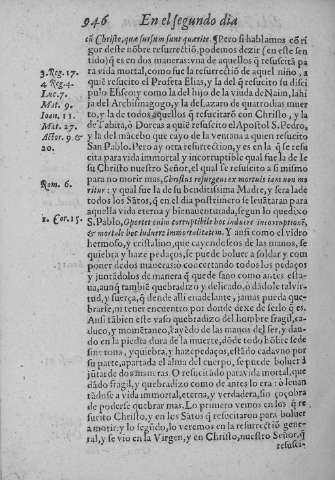 946 En el segundo dia
cũ Christo, quæ sursum sunt quærite. Pero si hablamos cõ ri
gor deste nõbre resurrectiõ, podemos dezir (en este sen
tido) q̃ es en dos maneras: vna de aquellos q̃ resuscitã pa
3. Reg. 17. ra vida mortal, como fue la resurrectiõ de aquel niño, a
4 Reg. 4. quiẽ resuscito el Profeta Elias, y la del q̃ resuscito su disci
Luc. 7. pulo Eliseo; y como la del hijo de la viuda de Naim, lahi
Mat. 9. ja del Archisinagogo, y la de Lazaro de quatro dias muer
Ioan. 11. to, y la de todos aquellos q̃ resuscitarõ con Christo, y la
Mat. 27. de Tabita, õ Dorcas a quiẽ resuscito el Apostol S. Pedro,
Actor. 9. & y la del mãcebo que cayo de la ventana a quien resuscito
20. San Pablo. Pero ay otra resurrection, y es en la q̃ se resu
cita para vida immortal y incorruptible qual fue la de Ie
su Christo nuestro Señor, el qual se resuscito a si mismo
para no morir mas, Christus resurgens ex mortuis iam non mo
Rom. 6. ritur: y qual fue la de su benditissima Madre, y sera la de
todos los Sãtos, q̃ en el dia postrimero se leuãtaran para
aquella vida eterna y bienauenturada, segun lo que dixo
1. Cor. 15. S. Pablo, Oportet enim corruptibile hoc induere incorruptionẽ,
& mortale hoc induere immortalitatem. Y ansi como el vidro
hermoso, y cristalino, que cayendoseos de las manos, se
quiebra y haze pedaços, se puede boluer a soldar y com
poner de dos maneras: ò concertando todos los pedaços
y juntandolos de manera q̃ quede sano como antes esta-
ua, aunq̃ tambiẽ quebradizo y delicado, ò dãdole tal vir
tud, y fuerça, q̃ dende alli en adelante, jamas pueda que-
brarse, ni tener encuentro por donde dexe de serlo q̃ es.
Ansi tãbien este vaso quebradizo del hombre fragil, ca-
duco, y momẽtaneo, cayẽdo de las manos del ser, y dan-
do en la piedra dura de la muerte, dõde todo hõbre se de
sintona, y quiebra, y haze pedaços, estãdo cada vno por
su parte, apartada el alma del cuerpo, se puede boluer a
jũtar de dos maneras. O resuscitãdo para vida mortal, que
dãdo fragil, y quebradizo como de antes lo era: ò leuan
tãdose a vida immortal, eterna, y verdadera, sin çoçobra
de poderse quebrar mas. Lo primero vemos en los q̃ re
suscito Christo, y en los Sãtos q̃ resuscitaron para boluer
a morir: y lo segũdo, lo veremos en la resurrectiõ gene-
ral, y se vio en la Virgen, y en Christo, nuestro Señor, q̃
resusci-